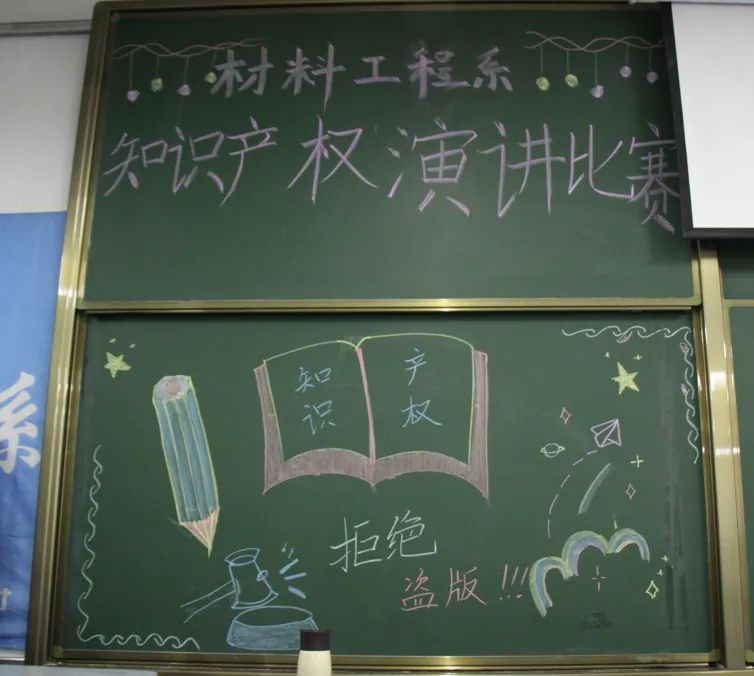 材料工程系
知识产权演讲比赛
知识
产权
拒绝
盗版!!!
系